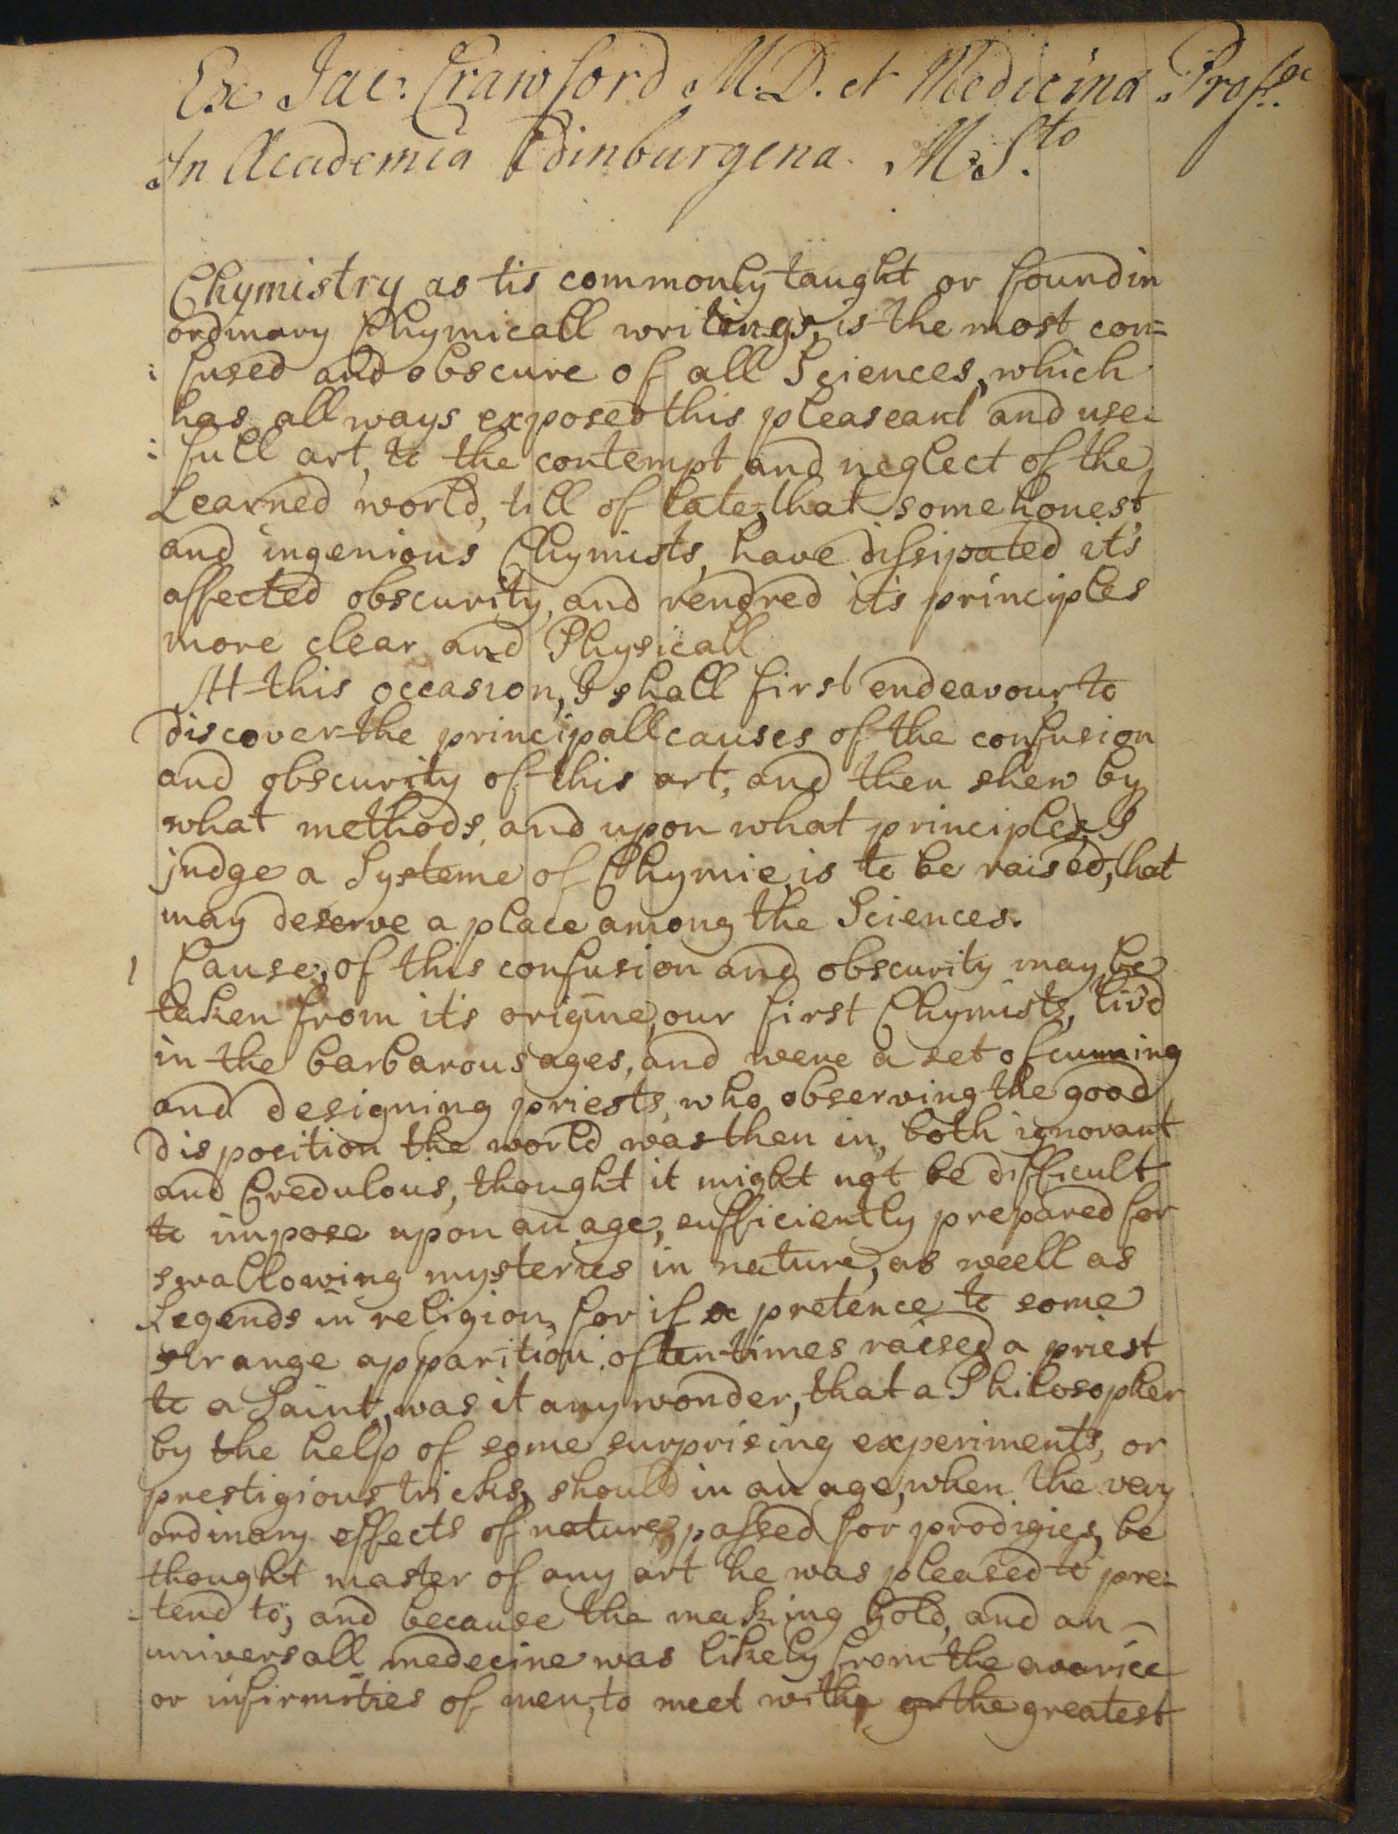 Ex Jac: Crawford M.D. et Medicina Profsre.
In Academia Edinburgena. M:S.to
Chymistry as tis commonly taught or found in
ordinary Chymicall writings, is the most con=
: fused and obscure of all Sciences, which
has all ways exposed this pleaseant and use:
: full art, to the contempt and neglect of the
Learned world, till of late, that some honest
and ingenious Chymists, have dissipated it's
affected obscurity, and rendred it's principles
more clear and Physicall
At this occasion, I shall first endeavour, to
discover the principall causes of the confusion
and obscurity of this art, and then shew by
what methods, and upon what principles, I
judge a Systeme of Chymie, is to be raised, that
may deserve a place among the Sciences.
1 Cause, of this confusion and obscurity may be
taken from it's origine, our first Chymists, liv'd
in the barbarous ages, and were a set of cunning
and designing priests, who observing the good
disposition the world was then in, both ignorant
and Credulous, thought it might not be difficult
to impose upon an age, sufficiently prepared for
swallowing mysteries in nature, as weell as
Legends in religion, for if a pretence to some
strange apparition, oftentimes raised a priest
to a Saint, was it any wonder, that a Philosopher
by the help of some surprising experiments, or
prestigious tricks, should in an age, when the very
ordinary effects of nature, passed for prodigies, be
thought master of any art he was pleased to pre:
: tend to; and because the making Gold, and an
universall medecine was likely from the avarice
or infirmities of men, to meet with the greatest